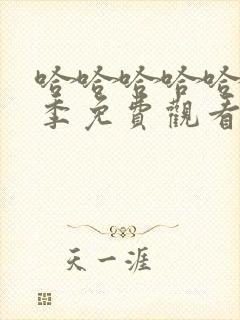 哈哈哈哈哈
季免費觀看
天一涯